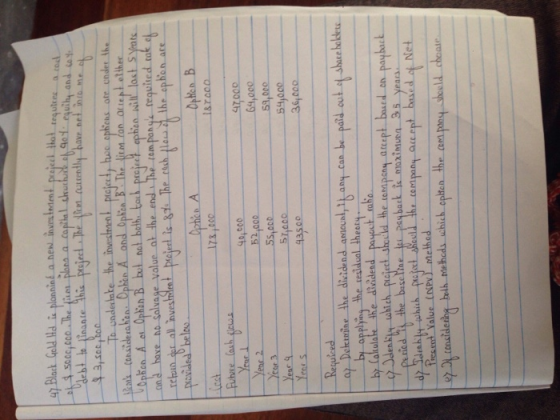 4) Black Gold Ltd is planning a new investment project that requires a cost
of $ 5000,000. The firm plans a capital structure of 40% equity and 60%
debt to finance this project. The firm currently have net income of
$ 2,500,000.
To undertake the investment project, two options are under the
firm's consideration: Option A and Option B. The firm can accept either
Option A or Option B but not both. Each project option will last 5 years
and have no salvage value at the end. The company's required rate of
return for all investment project is 8%. The cash flow of the option are
provided below
Option A Option B
Cost 178,000 187,000
Future Cash flows
Year 1 47,000
Year 2 52,000 64,000
Year 3 55,000 59,000
Year 4 57,000 54,000
Year 5 36,000
Required
a) Determine the dividend amount, if any can be paid out of shareholders
by applying the residual theory.
b) Calculate the dividend payout ratio
c) Identify which project should the company accept based on payback
period if the baseline for payback is maximum 3.5 years.
d) Identify which project should the company accept based of Net
Present Value (NPV) method
e) If considering both methods which option the company should choose